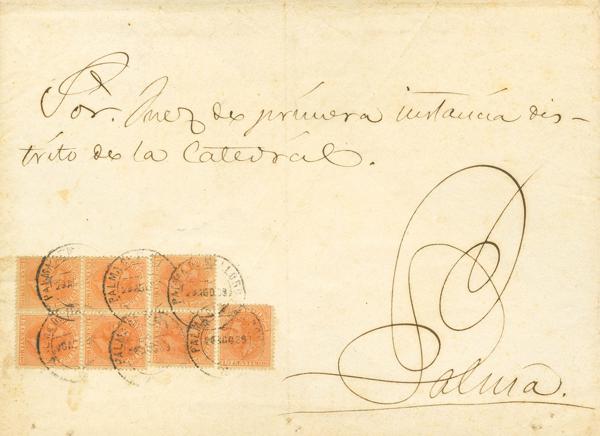 Sor. Juez de primera instancia dis-
trito de la Catedral.
Palma.
PALMA
PALMA
PALMA
PALMA
PALMA